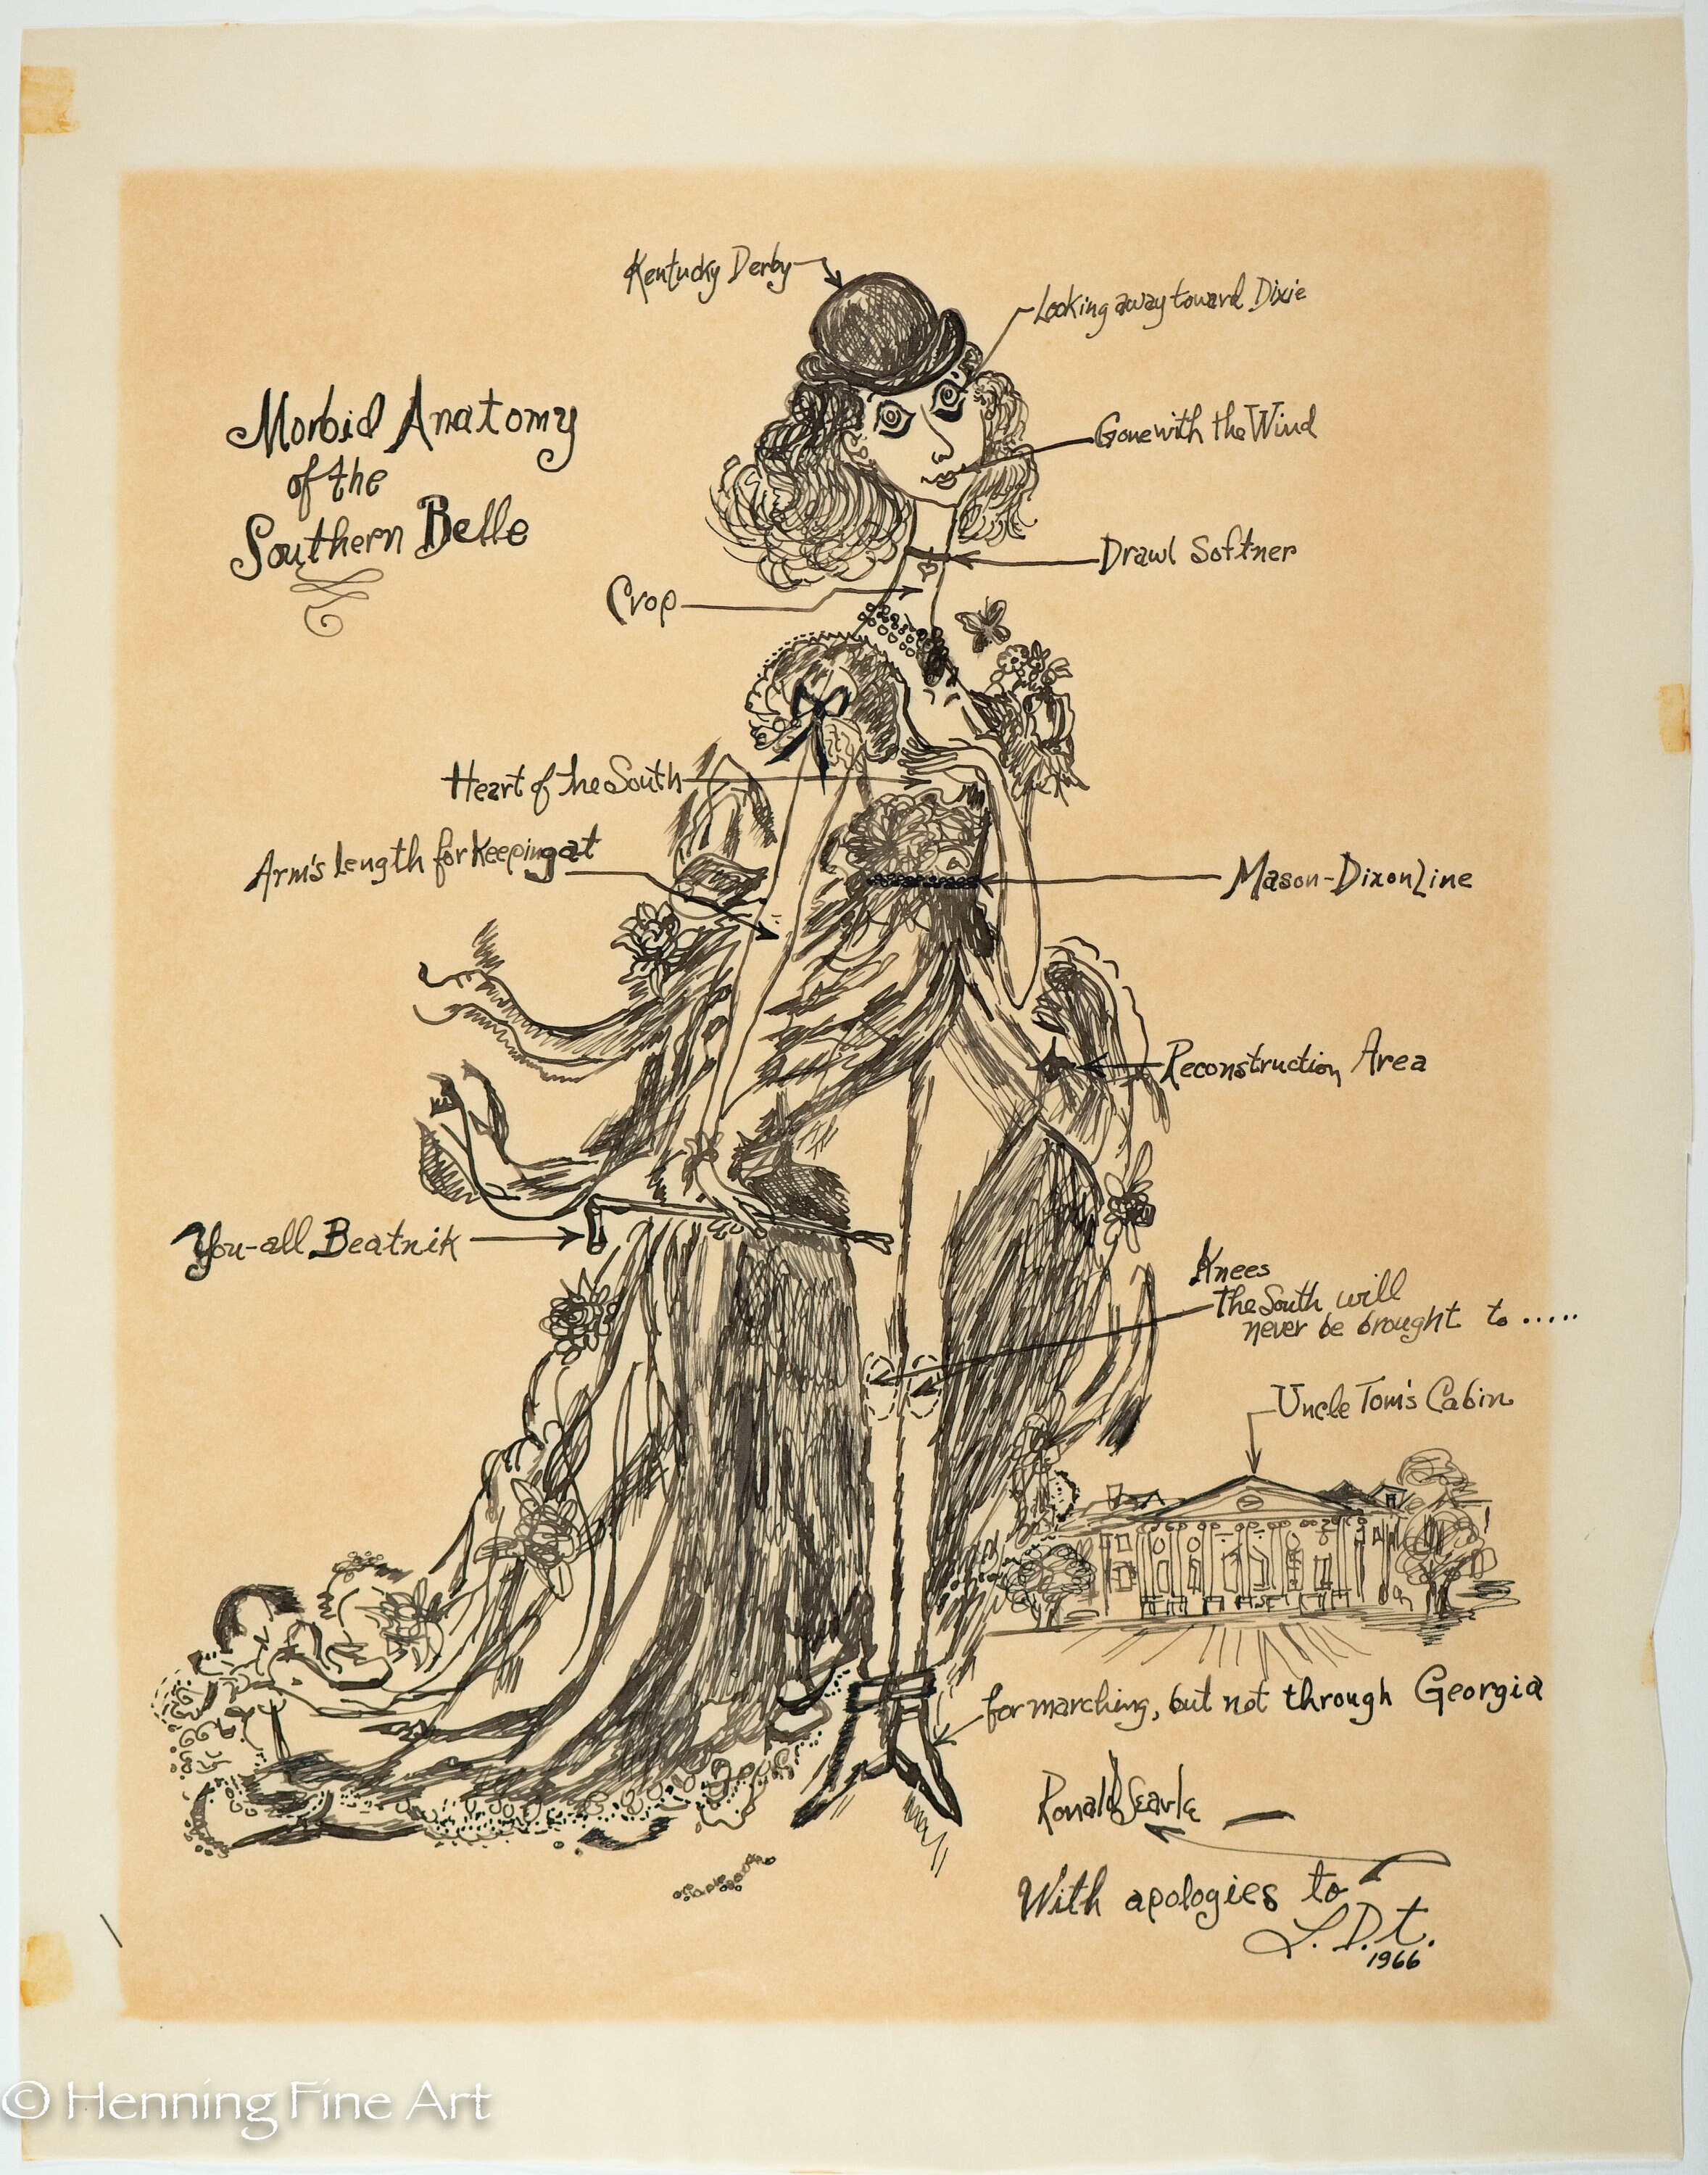 Kentucky Derby
Looking away toward Dixie
Morbid Anatomy
of the
Southern Belle
Gone with the Wind
Drawl Softner
Crop
Heart of the South
Arm's length for keeping at
Mason-Dixon Line
Reconstruction Area
You-all Beatnik
Knees
the South will
never be brought to .....
Uncle Tom's Cabin
for marching, but not through Georgia
Ronald Searle
With apologies to
L.D.T.
1966
© Henning Fine Art